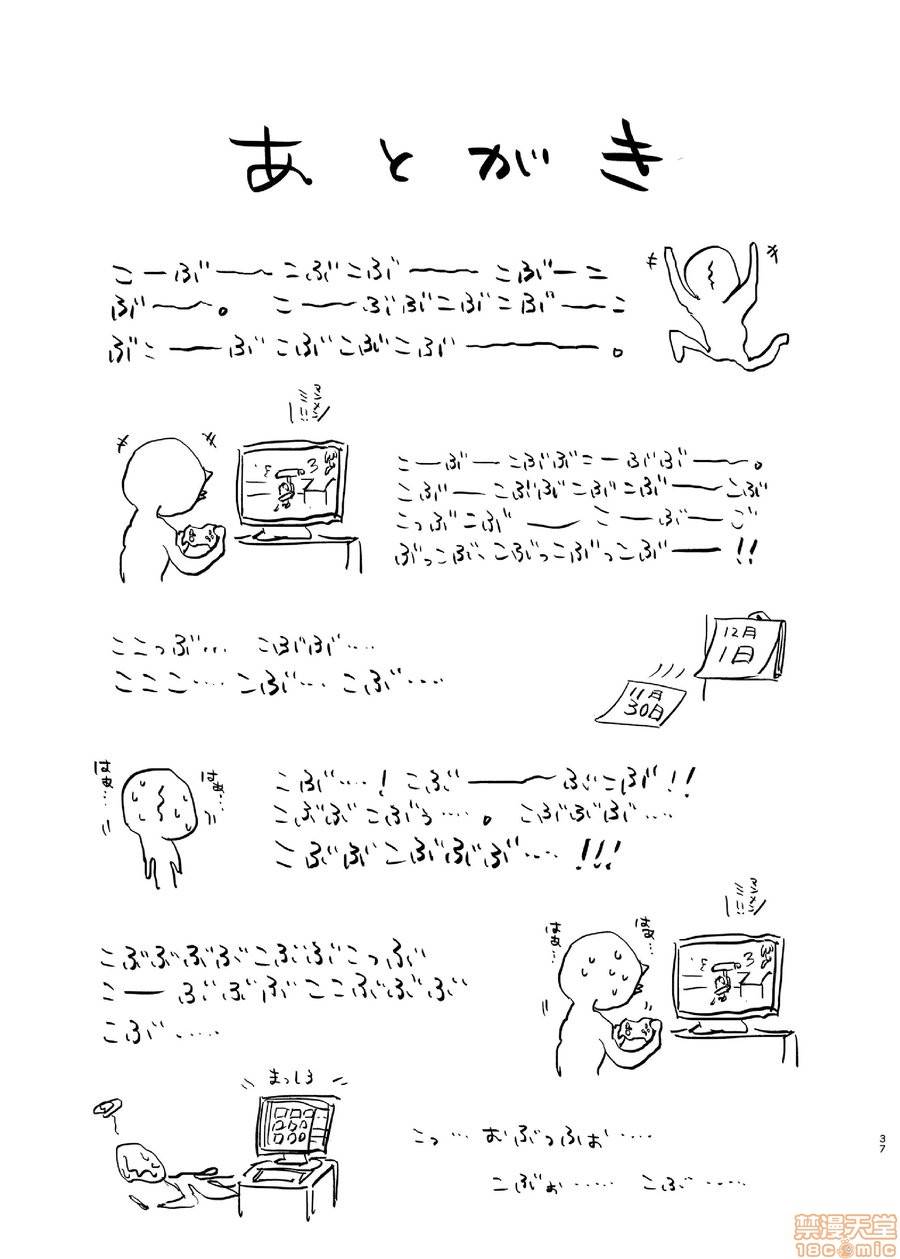 あとがき
こーぶーーこぶこぶーーこぶーこ
ぶーー。こーーぶぶこぶこぶーーこ
ぶこーーぶこぶこぶこぶーーーー。
アンメンミミ!!
こーぶーこぶぶこーぶぶーー。
こぶーこぶぶこぶこぶーーこぶ
こっぶこぶーー こーぶーご
ぶっこぶ、こぶっこぶっこぶーー!!
ここっぶ… こぶぶ….
こここ…こぶ…こぶ….
12月
1日
11月
30日
はぁ…
はぁ…
こぶ…!こぶーーーぶこぶ!!
こぶぶこぶぅ….。こぶぶぶ….
こぶぶこぶぶぶ….!!!
はぁ…
はぁ…
こぶぶぶぶこぶぶこっぶ
こーーぶぶぶここぶぶぶ
こぶ…..
まっしろ
こっ…おぶっふぉ….
こぶぉ….. こぶ…...
37
禁漫天堂
18comic